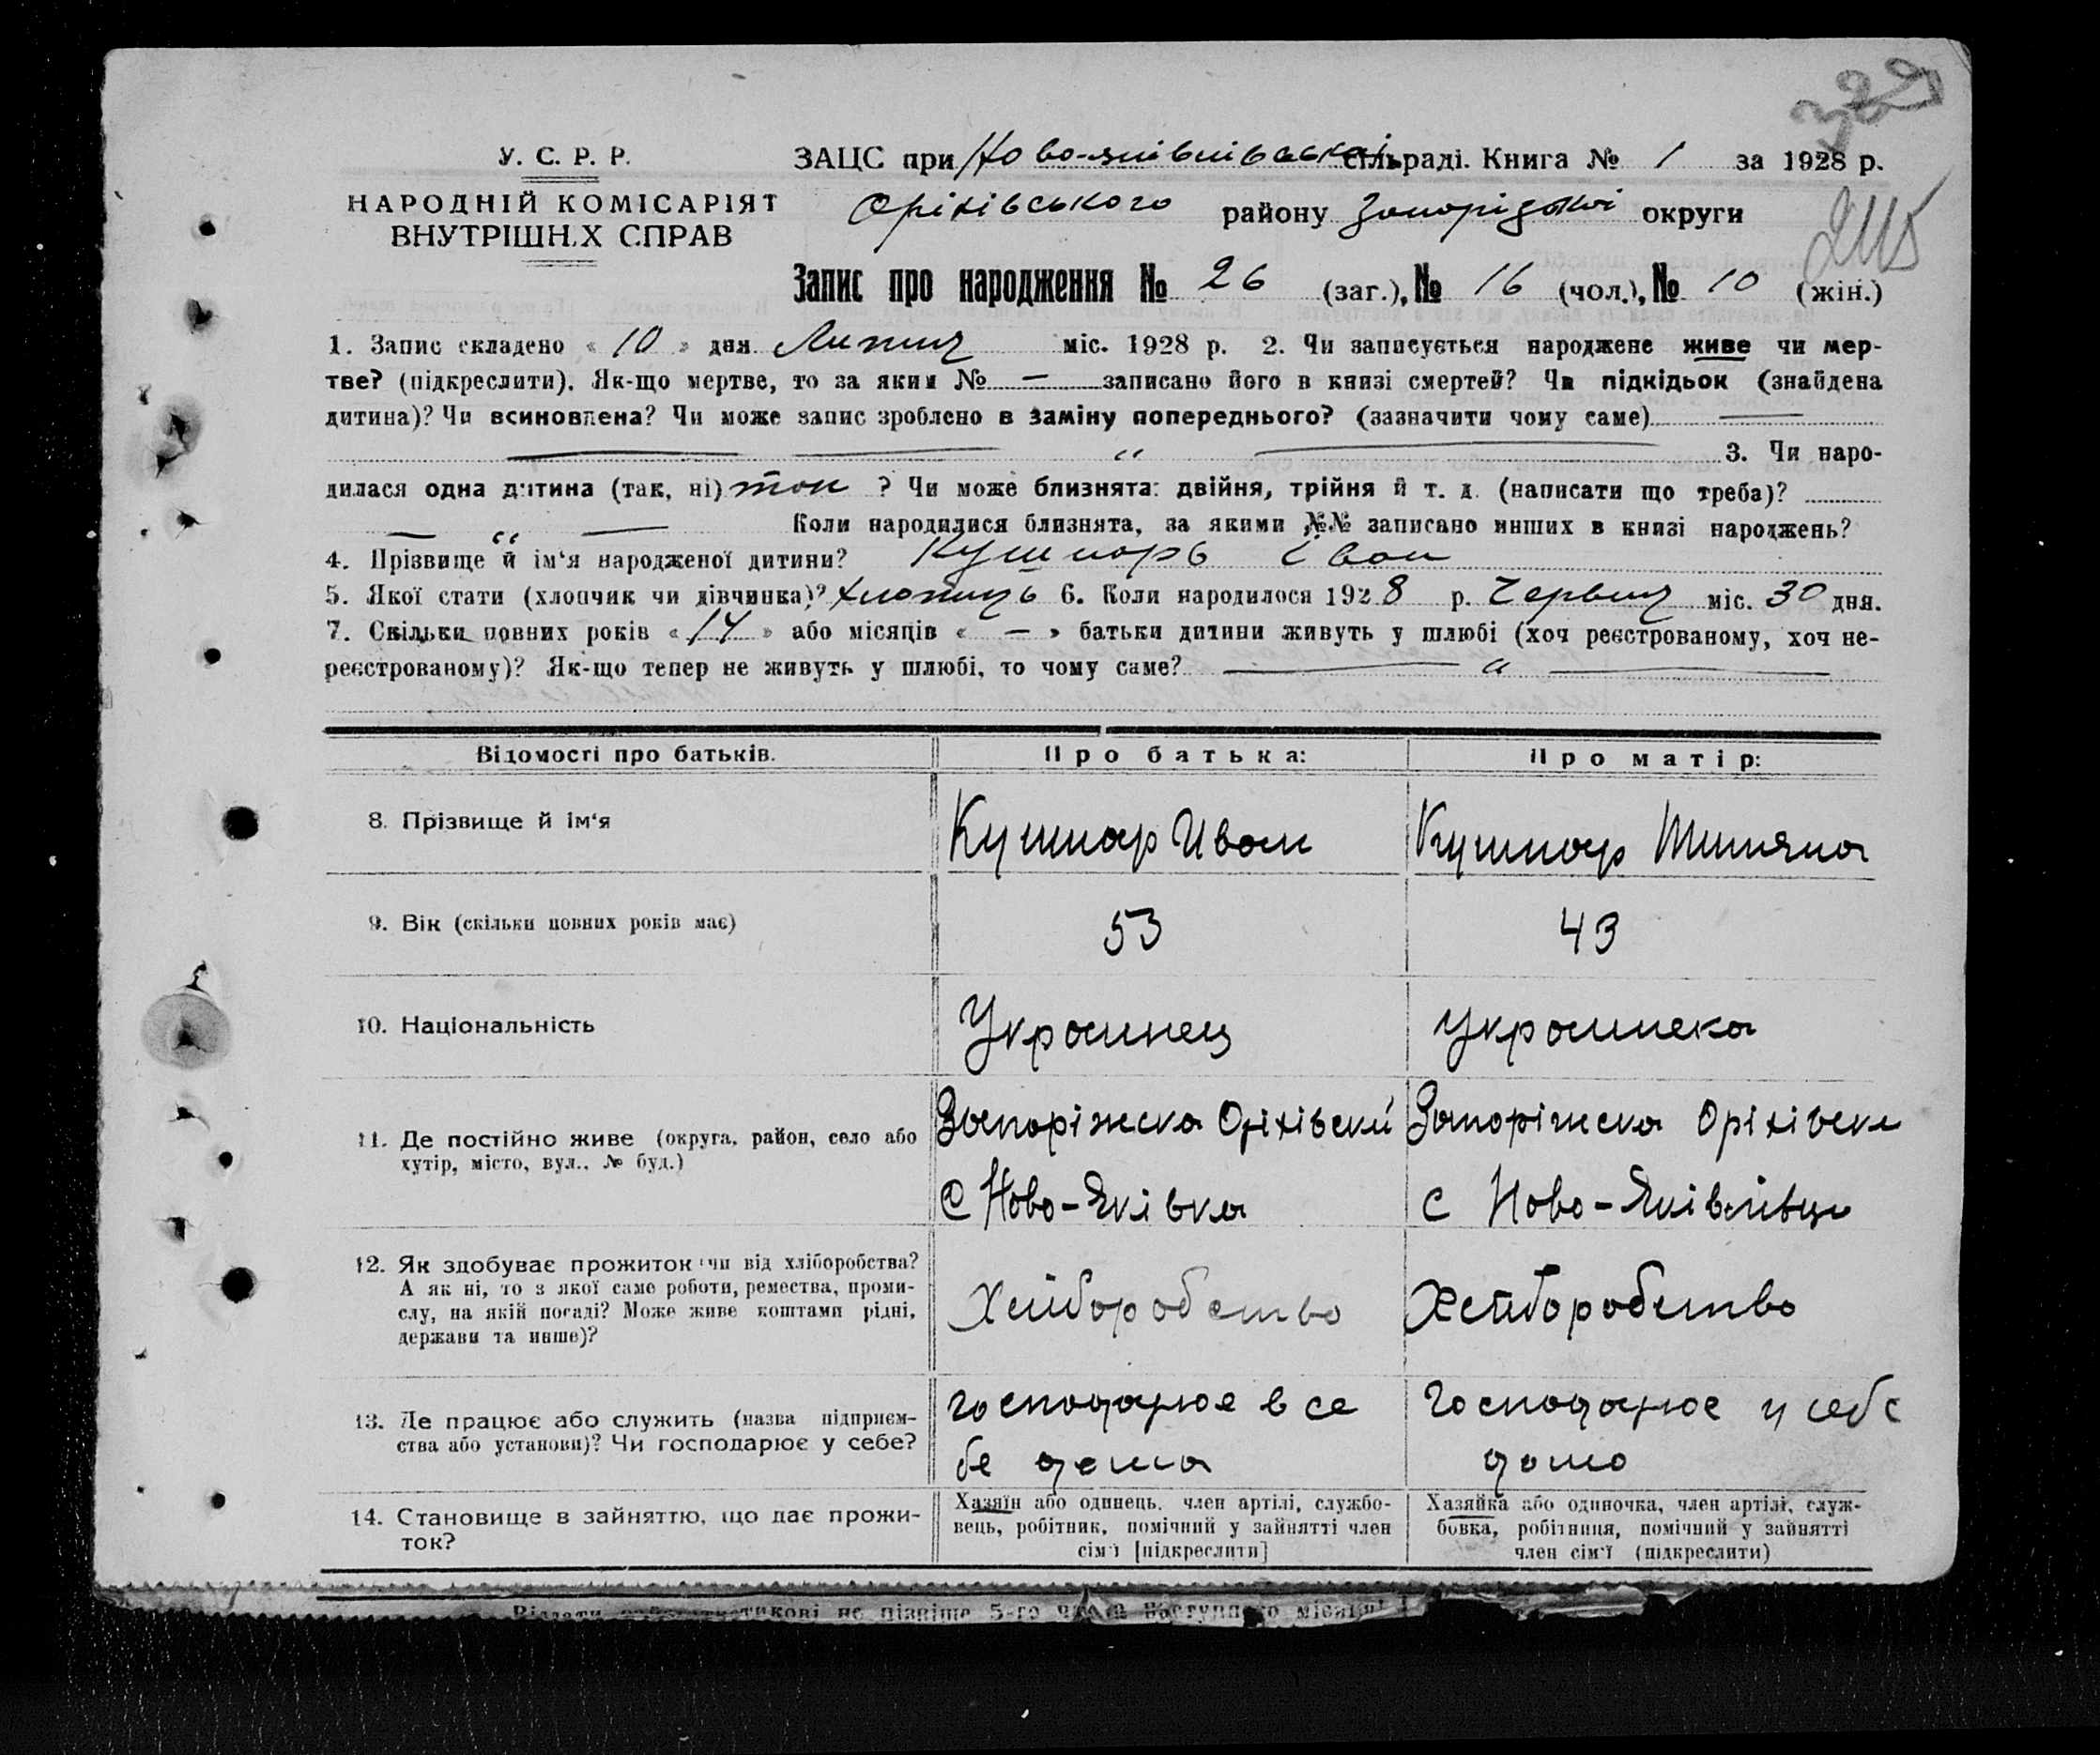 329
У. С. Р. Р.
НАРОДНІЙ КОМІСАРІЯТ
ВНУТРІШН.Х СПРАВ
ЗАЦС при Ново-Яківлівській сільраді. Книга № 1 за 1928 р.
Оріхівського району Запорізької округи
Запис про народження № 26 (заг.), № 16 (чол.), № 10 (жін.)
1. Запис складено « 10 » дня Липня міс. 1928 р. 2. Чи записується народжене живе чи мер-
тве? (підкреслити). Як-що мертве, то за яким № — записано його в книзі смертей? Чи підкідьок (знайдена
дитина)? Чи всиновлена? Чи може запис зроблено в заміну попереднього? (зазначити чому саме) —
— — „ — 3. Чи наро-
дилася одна дитина (так, ні) так ? Чи може близнята: двійня, трійня й т. д. (написати що треба)?
— „ — Коли народилися близнята, за якими №№ записано инших в книзі народжень?
4. Прізвище й ім‘я народженої дитини? Кушнарь Іван
5. Якої стати (хлопчик чи дівчинка)? хлопиць 6. Коли народилося 1928 р. Червня міс. 30 дня.
7. Скільки повних років « 14 » або місяців « — » батьки дитини живуть у шлюбі (хоч реєстрованому, хоч не-
реєстрованому)? Як-що тепер не живуть у шлюбі, то чому саме? — „ —
Відомості про батьків. Про батька: Про матір:
8. Прізвище й ім‘я Кушнар Иван Кушнар
9. Вік (скільки повних років має) 53 43
10. Національність Украинец Украинека
11. Де постійно живе (округа, район, село або
хутір, місто, вул., № буд.)
Запоріжска Оріхівский
С Ново-Яківка
Запоріжска Оріхівски
с Ново-Яківлівци
12. Як здобуває прожиток чи від хліборобства?
А як ні, то з якої саме роботи, ремества, проми-
слу, на якій посаді? Може живе коштами рідні,
держави та инше)?
Хлиборобство
Хлиборобство
13. Де працює або служить (назва підприєм-
ства або установи)? Чи господарює у себе?
господарює в се
бе дома
Господарює у себе
дома
14. Становище в зайняттю, що дає прожи-
ток?
Хазяїн або одинець, член артілі, службо-
вець, робітник, помічний у зайнятті член
сім‘ї [підкреслити]
Хазяйка або одиночка, член артілі, служ-
бовка, робітниця, помічний у зайнятті
член сім‘ї (підкреслити)
не пізніше 5-го числа наступного місяця!